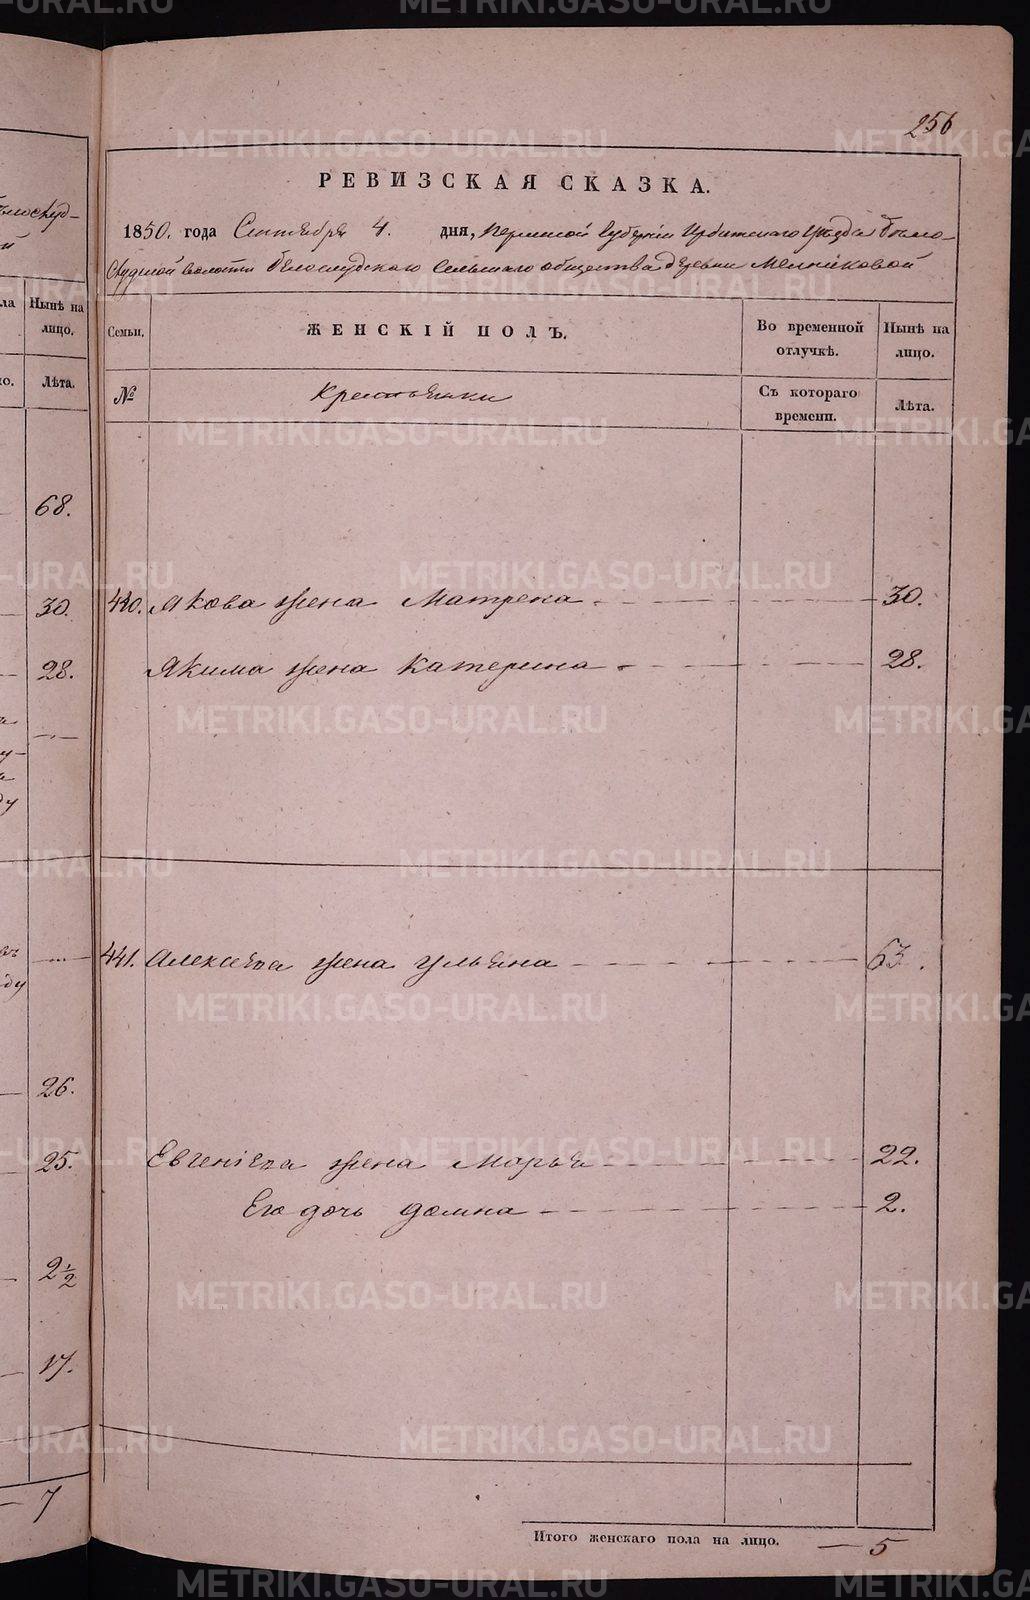 256
РЕВИЗСКАЯ СКАЗКА.
1850. года Сентября 4. дня, Пермской Губернiи Ирбитскаго Уѣзда Бѣло-
слудской волости Бѣлослудскаго Сельскаго общества деревни Мельниковой
Семьи. ЖЕНСКIЙ ПОЛЪ. Во временной отлучкѣ. Нынѣ на лицо.
№ Крестьянки Съ котораго времени. Лѣта.
440. Якова жена Матрена 30.
Якима жена Катерина 28.
441. Алексѣева жена Ульяна 63.
Евгенiева жена Марья 22.
Его дочь Домна 2.
Итого женскаго пола на лицо. 5
Нынѣ на лицо.
Лѣта.
68.
30.
28.
26.
25.
2½
17.
7
METRIKI.GASO-URAL.RU